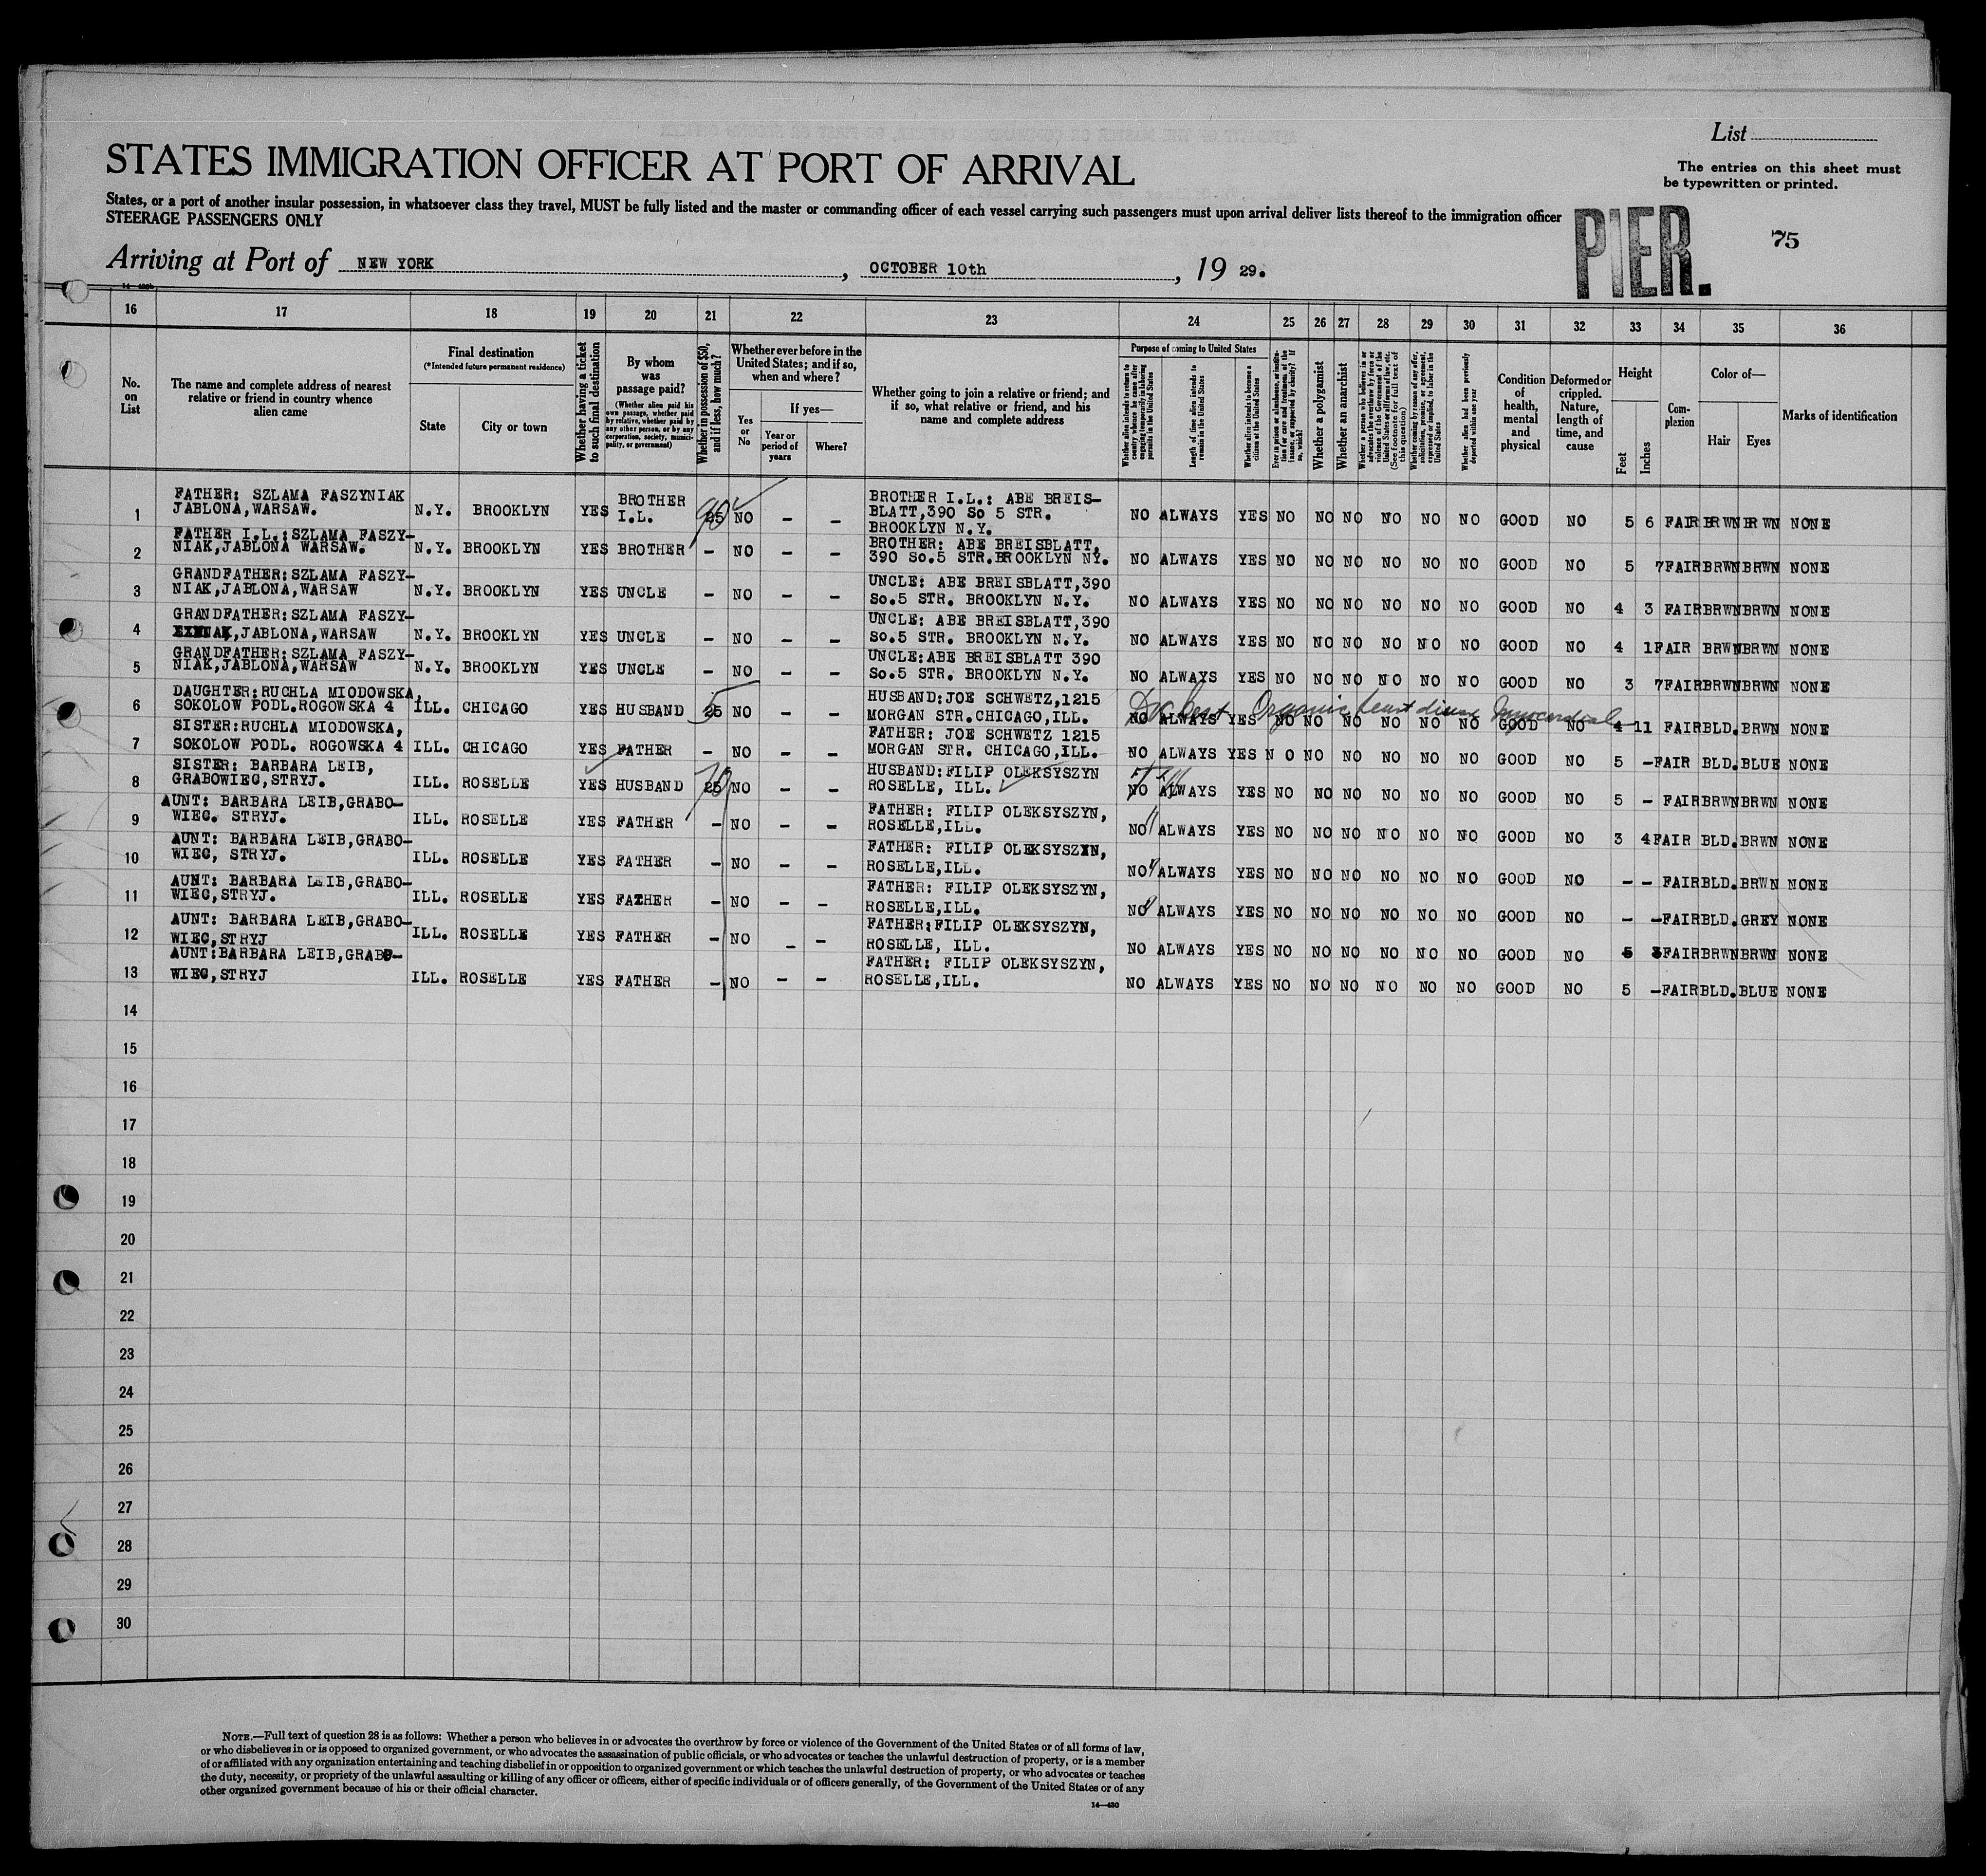 List
The entries on this sheet must
be typewritten or printed.
STATES IMMIGRATION OFFICER AT PORT OF ARRIVAL
States, or a port of another insular possession, in whatsoever class they travel, MUST be fully listed and the master or commanding officer of each vessel carrying such passengers must upon arrival deliver lists thereof to the immigration officer
STEERAGE PASSENGERS ONLY
PIER.
75
Arriving at Port of NEW YORK, OCTOBER 10th, 19 29.
16 17 18 19 20 21 22 23 24 25 26 27 28 29 30 31 32 33 34 35 36
No. on List
The name and complete address of nearest relative or friend in country whence alien came
Final destination
(*Intended future permanent residence)
State
City or town
Whether having a ticket to such final destination
By whom was passage paid?
(Whether alien paid his own passage, whether paid by relative, whether paid by any other person, or by any corporation, society, municipality, or government)
Whether in possession of $50, and if less, how much?
Whether ever before in the United States; and if so, when and where?
Yes or No
If yes—
Year or period of years
Where?
Whether going to join a relative or friend; and if so, what relative or friend, and his name and complete address
Purpose of coming to United States
Whether alien intends to return to country whence he came after engaging temporarily in laboring pursuits in the United States
Length of time alien intends to remain in the United States
Whether alien intends to become a citizen of the United States
Ever in prison or almshouse, or institution for care and treatment of the insane, or supported by charity? If so, which?
Whether a polygamist
Whether an anarchist
Whether a person who believes in or advocates the overthrow by force or violence of the Government of the United States or all forms of law, etc. (See footnote for full text of this question)
Whether coming by reason of any offer, solicitation, promise, or agreement, expressed or implied, to labor in the United States
Whether alien had been previously deported within one year
Condition of health, mental and physical
Deformed or crippled. Nature, length of time, and cause
Height
Feet
Inches
Complexion
Color of—
Hair
Eyes
Marks of identification
1 FATHER: SZLAMA FASZYNIAK JABLONA,WARSAW. N.Y. BROOKLYN YES BROTHER I.L. 25 90 NO – – BROTHER I.L.: ABE BREIS-BLATT,390 So 5 STR. BROOKLYN N.Y. NO ALWAYS YES NO NO NO NO NO NO GOOD NO 5 6 FAIR BRWN BRWN NONE
2 FATHER I.L.:SZLAMA FASZY-NIAK,JABLONA WARSAW. N.Y. BROOKLYN YES BROTHER – NO – – BROTHER: ABE BREISBLATT, 390 So.5 STR.BROOKLYN NY. NO ALWAYS YES NO NO NO NO NO NO GOOD NO 5 7 FAIR BRWN BRWN NONE
3 GRANDFATHER:SZLAMA FASZY-NIAK,JABLONA,WARSAW N.Y. BROOKLYN YES UNCLE – NO – – UNCLE: ABE BREISBLATT,390 So.5 STR. BROOKLYN N.Y. NO ALWAYS YES NO NO NO NO NO NO GOOD NO 4 3 FAIR BRWN BRWN NONE
4 GRANDFATHER:SZLAMA FASZY-NAK,JABLONA,WARSAW N.Y. BROOKLYN YES UNCLE – NO – – UNCLE: ABE BREISBLATT,390 So.5 STR. BROOKLYN N.Y. NO ALWAYS YES NO NO NO NO NO NO GOOD NO 4 1 FAIR BRWN BRWN NONE
5 GRANDFATHER:SZLAMA FASZY-NIAK,JABLONA,WARSAW N.Y. BROOKLYN YES UNCLE – NO – – UNCLE:ABE BREISBLATT 390 So.5 STR. BROOKLYN N.Y. NO ALWAYS YES NO NO NO NO NO NO GOOD NO 3 7 FAIR BRWN BRWN NONE
6 DAUGHTER:RUCHLA MIODOWSKA, SOKOLOW PODL.ROGOWSKA 4 ILL. CHICAGO YES HUSBAND 25 5 NO – – HUSBAND:JOE SCHWETZ,1215 MORGAN STR.CHICAGO,ILL. NO ALWAYS YES NO NO NO NO NO NO GOOD NO 4 11 FAIR BLD. BRWN NONE
Organic heart disease
7 SISTER:RUCHLA MIODOWSKA, SOKOLOW PODL. ROGOWSKA 4 ILL. CHICAGO YES FATHER – NO – – FATHER: JOE SCHWETZ 1215 MORGAN STR. CHICAGO,ILL. NO ALWAYS YES NO NO NO NO NO NO GOOD NO 5 – FAIR BLD. BLUE NONE
8 SISTER: BARBARA LEIB, GRABOWIEC,STRYJ. ILL. ROSELLE YES HUSBAND 25 70 NO – – HUSBAND:FILIP OLEKSYSZYN ROSELLE, ILL. NO ALWAYS YES NO NO NO NO NO NO GOOD NO 5 – FAIR BRWN BRWN NONE
9 AUNT: BARBARA LEIB,GRABO-WIEC. STRYJ. ILL. ROSELLE YES FATHER – NO – – FATHER: FILIP OLEKSYSZYN, ROSELLE,ILL. NO ALWAYS YES NO NO NO NO NO NO GOOD NO 3 4 FAIR BLD. BRWN NONE
10 AUNT: BARBARA LEIB,GRABO-WIEC, STRYJ. ILL. ROSELLE YES FATHER – NO – – FATHER: FILIP OLEKSYSZYN, ROSELLE,ILL. NO ALWAYS YES NO NO NO NO NO NO GOOD NO – – FAIR BLD. BRWN NONE
11 AUNT: BARBARA LEIB,GRABO-WIEC,STRYJ. ILL. ROSELLE YES FATHER – NO – – FATHER: FILIP OLEKSYSZYN, ROSELLE,ILL. NO ALWAYS YES NO NO NO NO NO NO GOOD NO – – FAIR BLD. GREY NONE
12 AUNT: BARBARA LEIB,GRABO-WIEC,STRYJ ILL. ROSELLE YES FATHER – NO – – FATHER:FILIP OLEKSYSZYN, ROSELLE, ILL. NO ALWAYS YES NO NO NO NO NO NO GOOD NO 5 3 FAIR BRWN BRWN NONE
13 AUNT:BARBARA LEIB,GRABO-WIEC,STRYJ ILL. ROSELLE YES FATHER – NO – – FATHER: FILIP OLEKSYSZYN, ROSELLE,ILL. NO ALWAYS YES NO NO NO NO NO NO GOOD NO 5 – FAIR BLD. BLUE NONE
14
15
16
17
18
19
20
21
22
23
24
25
26
27
28
29
30
NOTE.—Full text of question 28 is as follows: Whether a person who believes in or advocates the overthrow by force or violence of the Government of the United States or of all forms of law,
or who disbelieves in or is opposed to organized government, or who advocates the assassination of public officials, or who advocates or teaches the unlawful destruction of property, or is a member
of or affiliated with any organization entertaining and teaching disbelief in or opposition to organized government or which teaches the unlawful destruction of property, or who advocates or teaches
the duty, necessity, or propriety of the unlawful assaulting or killing of any officer or officers, either of specific individuals or of officers generally, of the Government of the United States or of any
other organized government because of his or their official character.
14—430